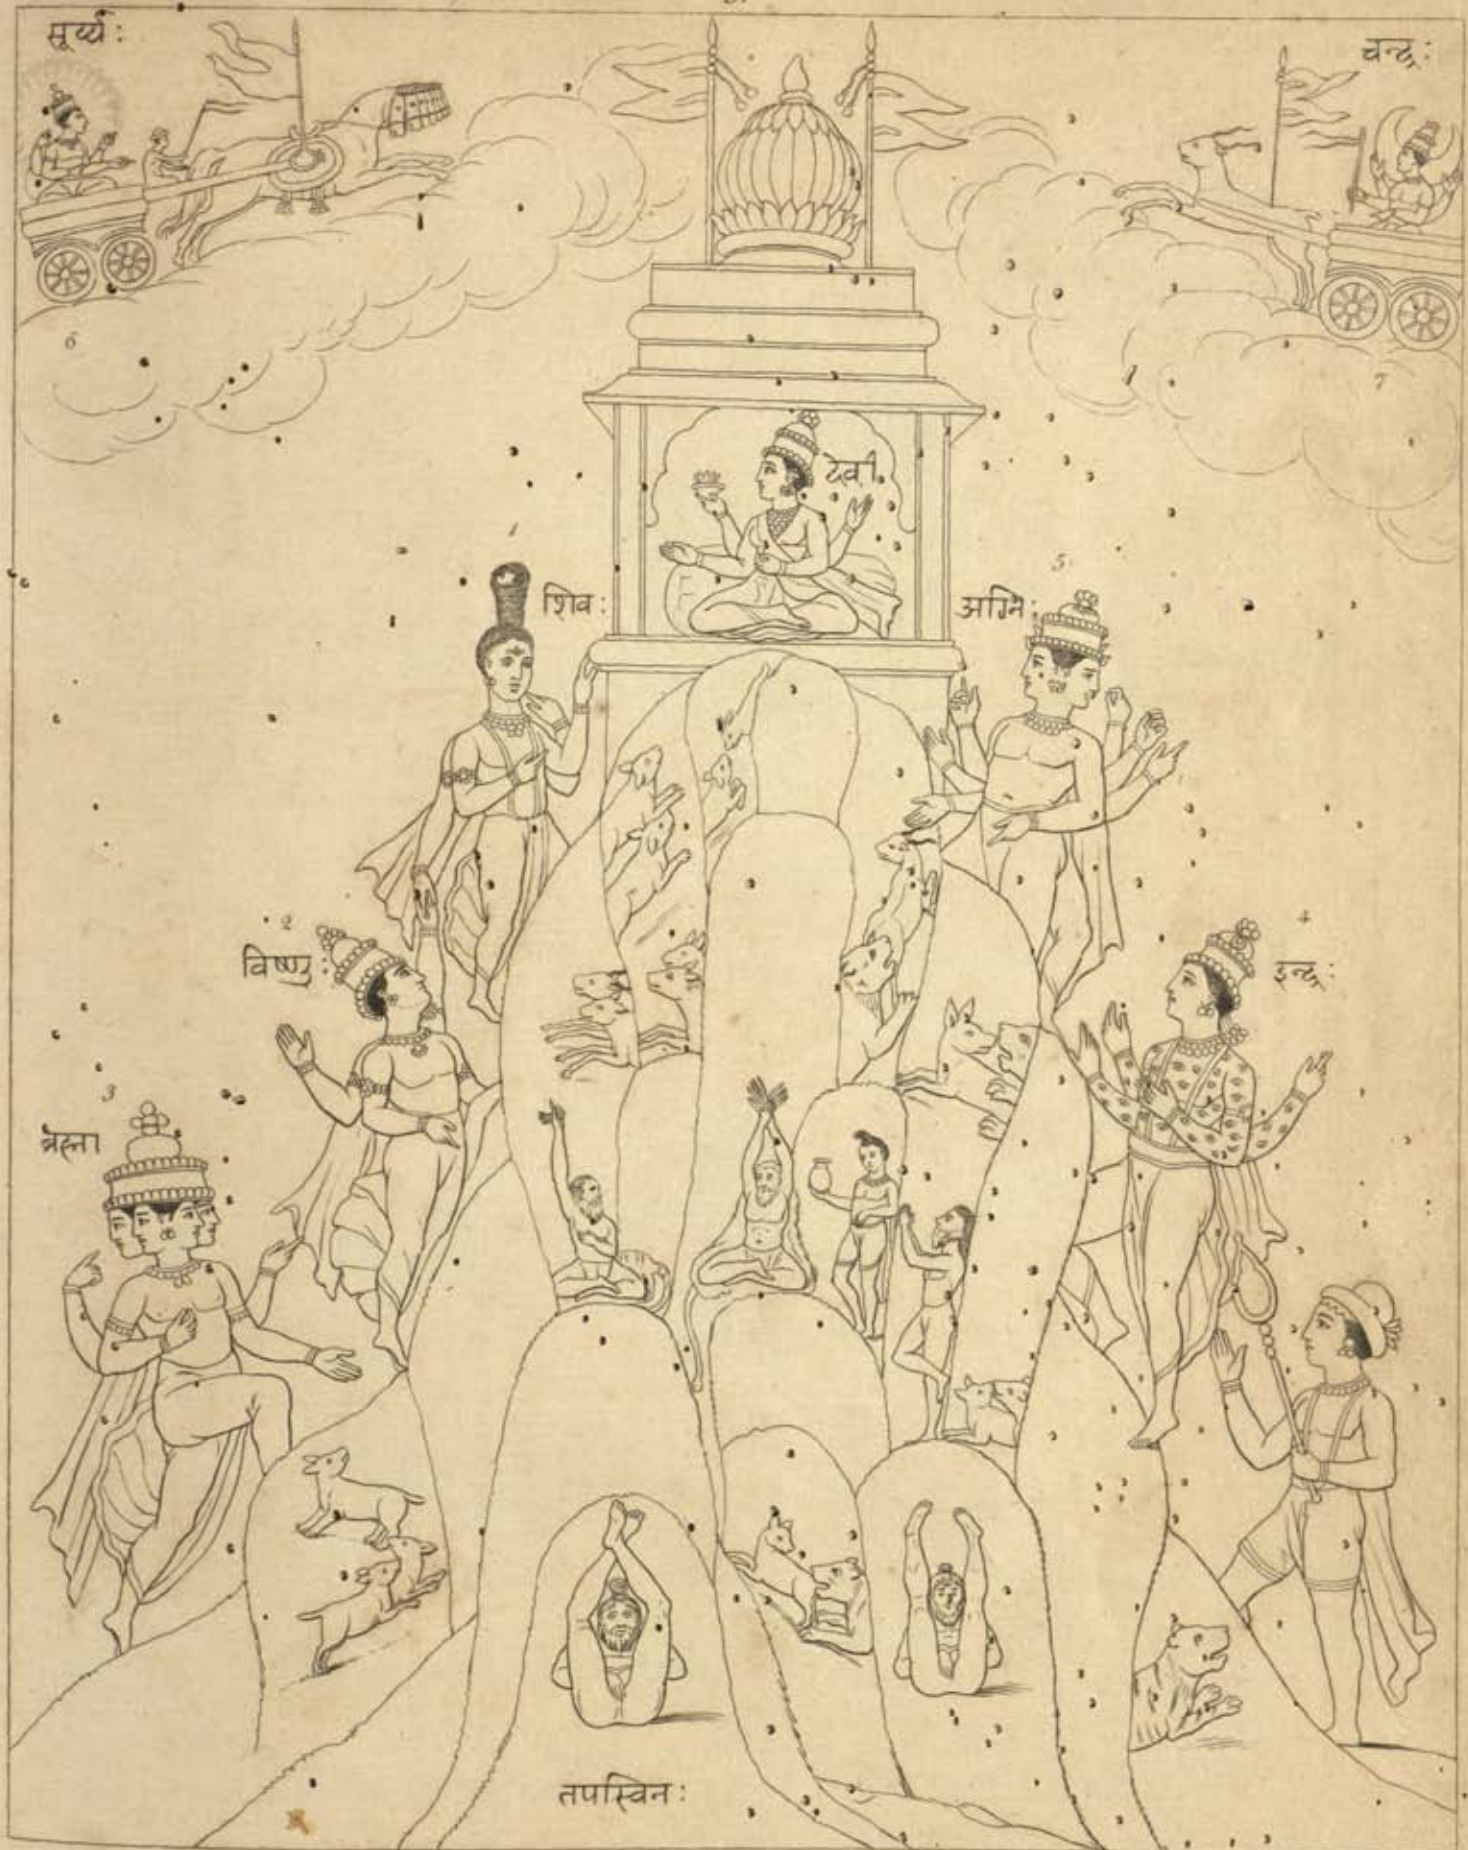 सूर्य्य:
चन्द्र:
6
7
देवी
1
शिव:
5
अग्नि:
2
विष्णु:
4
इन्द्र:
3
ब्रह्मा
तपस्विन: